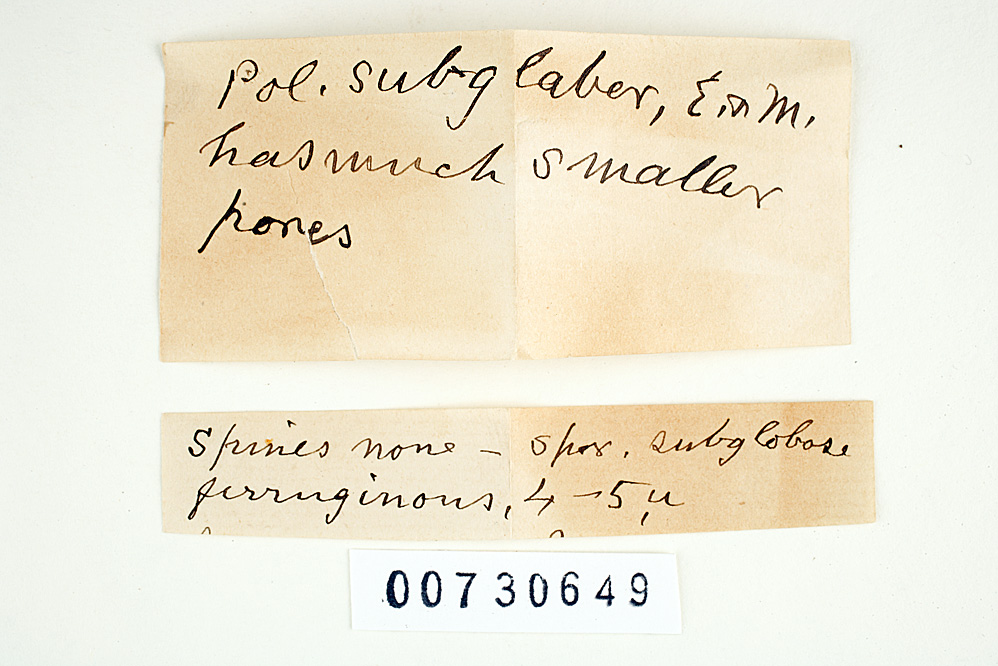 Pol. subglaber, E. & M.
has much smaller
pores
Spines none – spor. subglobose
ferruginous, 4–5 µ
00730649